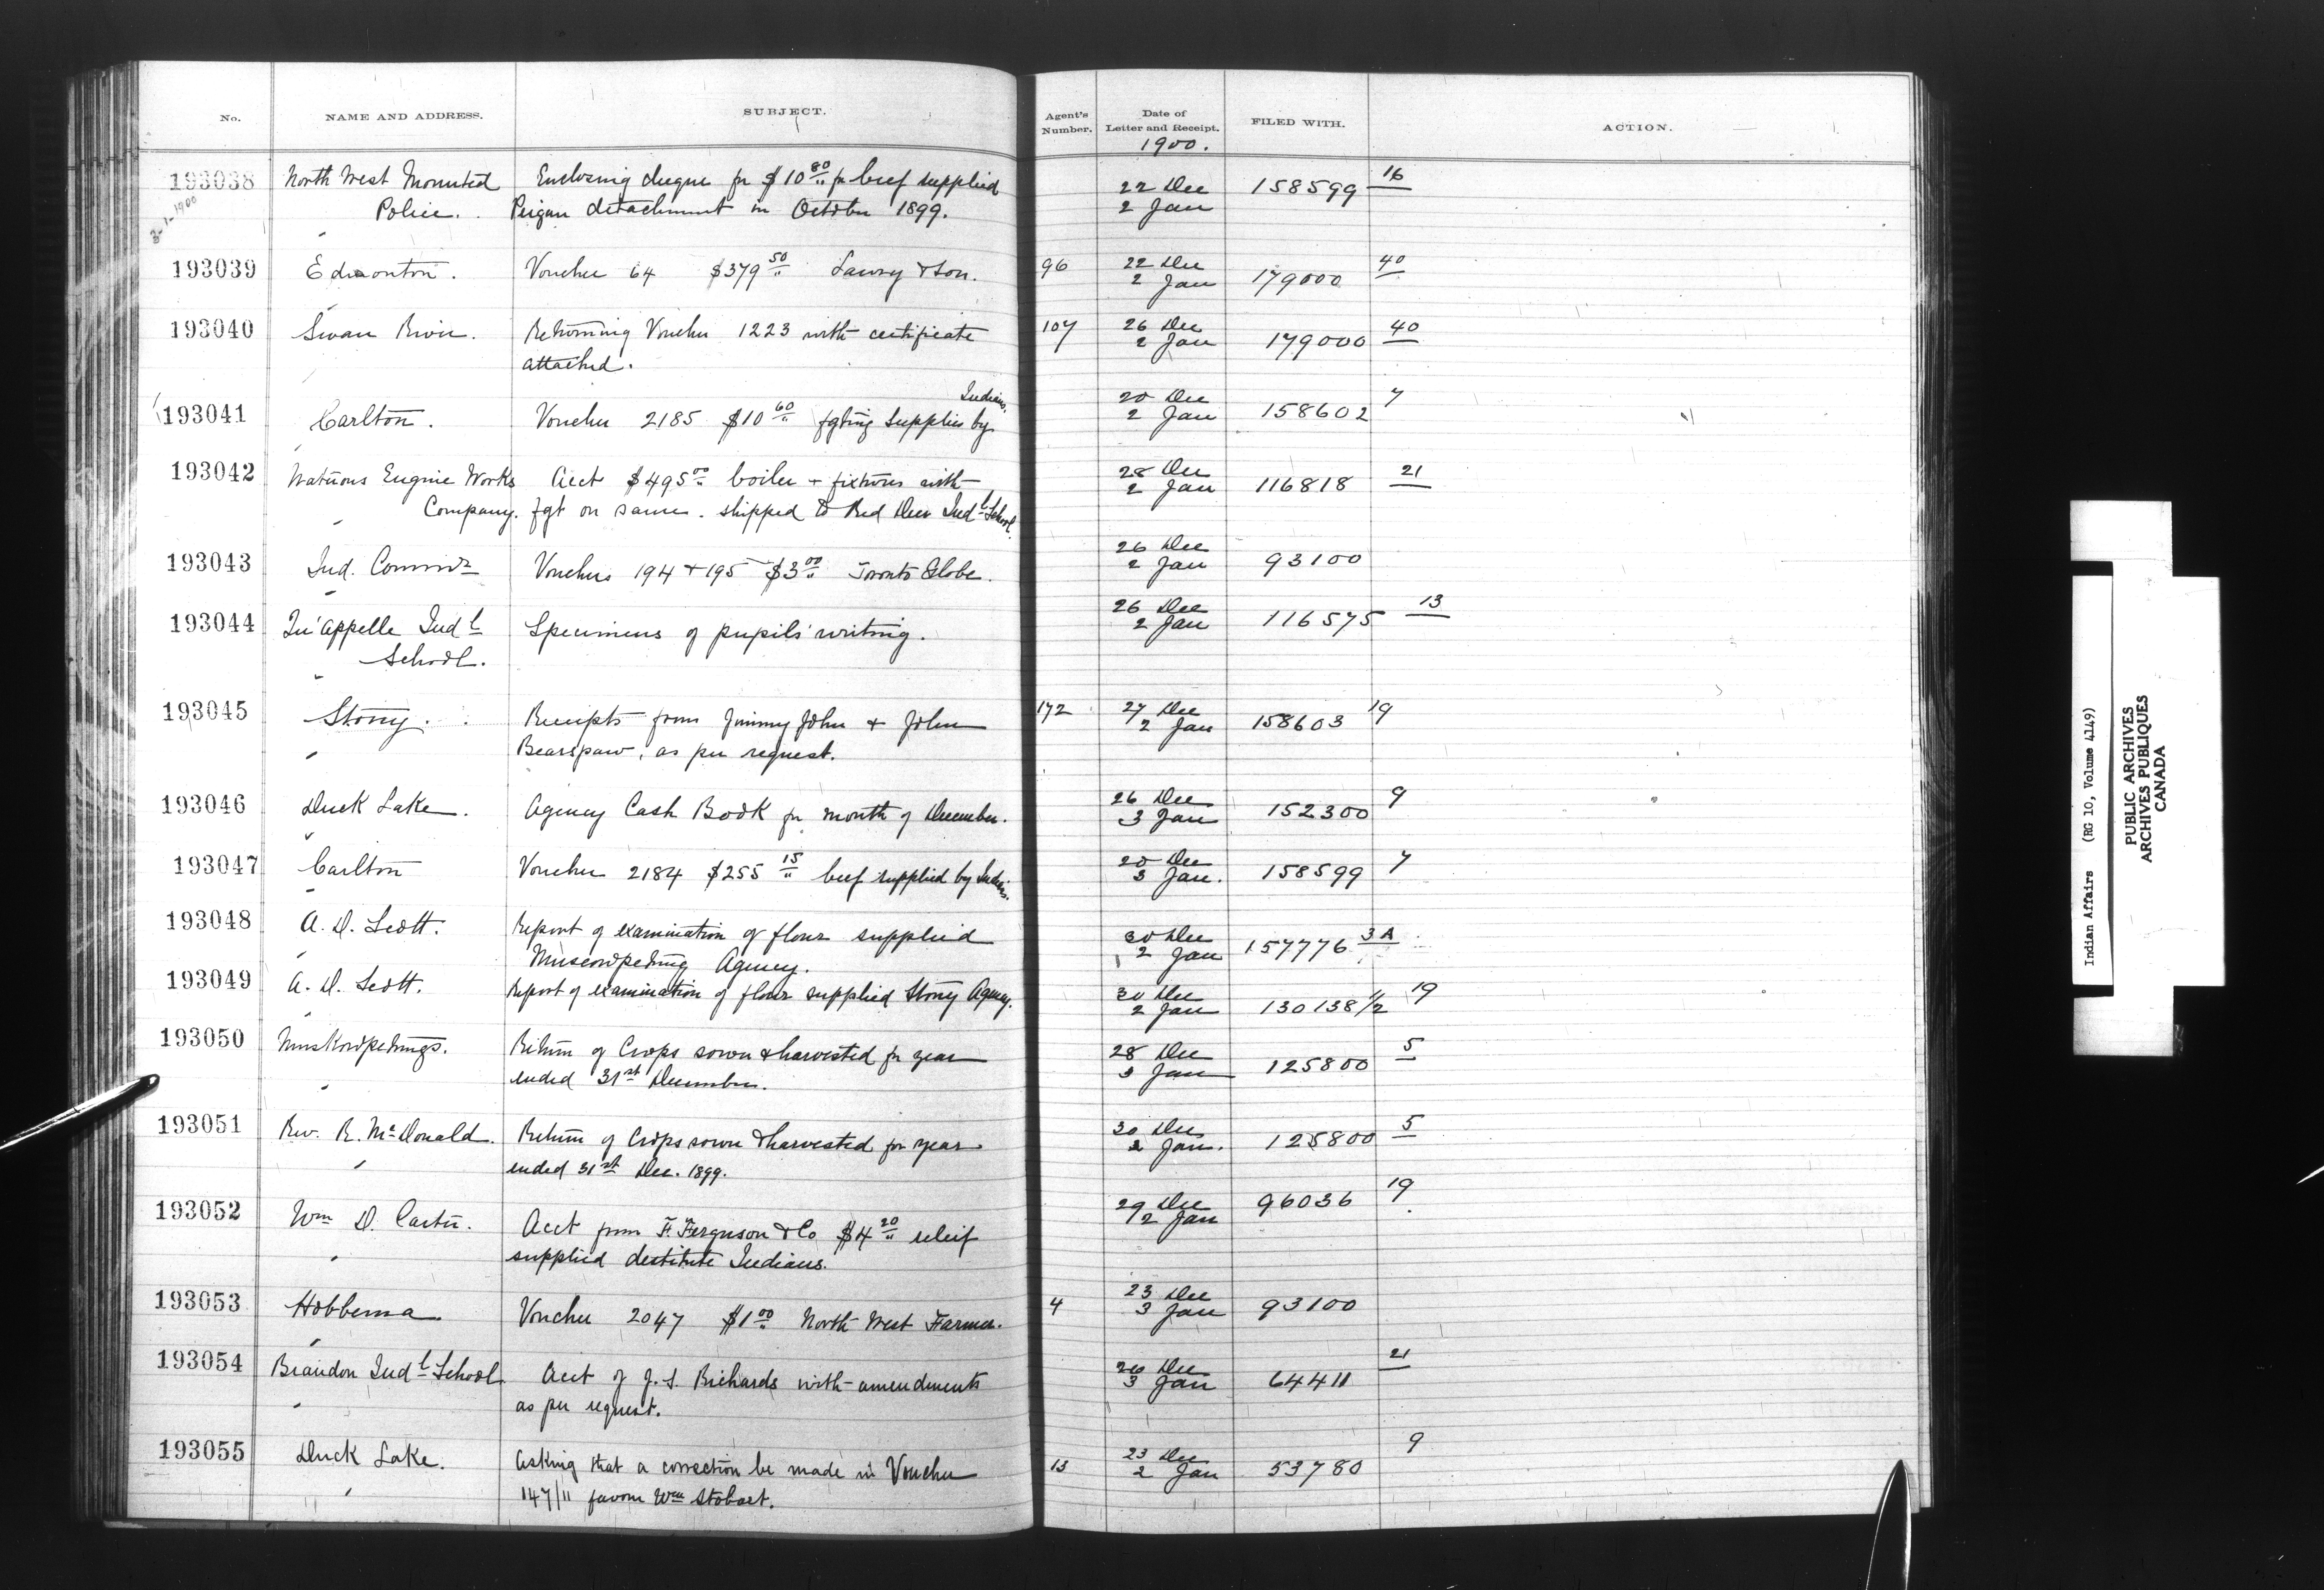 No. NAME AND ADDRESS. SUBJECT. Agent's Number. Date of Letter and Receipt. FILED WITH. ACTION.
1900.
193038 North West Mounted Enclosing cheque for $10 80/" for beef supplied 22 Dec 158599 16
3-1-1900 Police. Peigan detachment in October 1899. 2 Jan
193039 Edmonton. Voucher 64 $379 50/" Lawry & Son. 96 22 Dec 179000 40
2 Jan
193040 Swan River. Returning Voucher 1223 with certificate 107 26 Dec 179000 40
attached. 2 Jan
193041 Carlton. Voucher 2185 $10 60/" fgting supplies by Indians. 20 Dec 158602 7
2 Jan
193042 Watrous Engine Works Acct $495 00/" boiler + fixtures with 28 Dec 116818 21
Company. fgt on same. shipped to Red Deer Indl School. 2 Jan
193043 Ind. Commr Vouchers 194 + 195 $3 00/" Toronto Globe. 26 Dec 93100
2 Jan
193044 Qu'Appelle Indl Specimens of pupils' writing. 26 Dec 116575 13
School. 2 Jan
193045 Stony. Receipts from Jimmy John + John 172 27 Dec 158603 19
Bearspaw, as per request. 2 Jan
193046 Duck Lake. Agency Cash Book for month of December. 26 Dec 152300 9
3 Jan
193047 Carlton Voucher 2184 $255 15/" beef supplied by Indians. 20 Dec 158599 7
3 Jan.
193048 A. D. Scott. Report of examination of flour supplied 30 Dec 157776 3A
Muscowpetung Agency. 2 Jan
193049 A. D. Scott. Report of examination of flour supplied Stony Agency. 30 Dec 130138 1/2 19
2 Jan
193050 Muskowpetungs. Return of Crops sown & harvested for year 28 Dec 125800 5
ended 31st December. 3 Jan
193051 Rev. R. McDonald. Return of Crops sown & harvested for year 30 Dec 125800 5
ended 31st Dec. 1899. 2 Jan.
193052 Wm D. Carter. Acct from F. Ferguson & Co $4 20/" releif 29 Dec 96036 19
supplied destitute Indians. 2 Jan
193053 Hobbema Voucher 2047 $1 00/" North West Farmer. 4 23 Dec 93100
3 Jan
193054 Brandon Indl School Acct of J. S. Richards with amendments Dec 64411 21
as per request. 3 Jan
193055 Duck Lake. Asking that a correction be made in Voucher 13 23 Dec 53780 9
147/11 favour Wm Stobart. 2 Jan
Indian Affairs (RG 10, Volume 4149)
PUBLIC ARCHIVES
ARCHIVES PUBLIQUES
CANADA